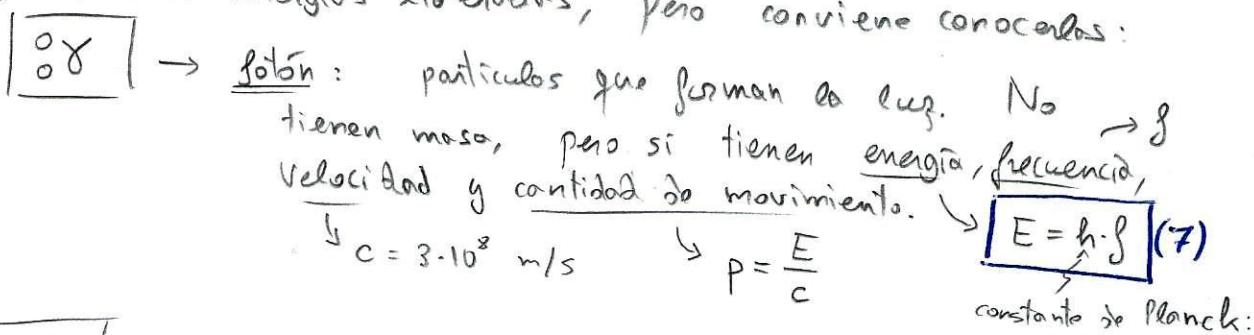 , pero conviene conocerlas:
⁰₀γ → fotón: partículas que forman la luz. No
tienen masa, pero sí tienen energía, frecuencia, → f
velocidad y cantidad de movimiento.
E = h·f (7)
c = 3·10⁸ m/s
p = E/c
constante de Planck: